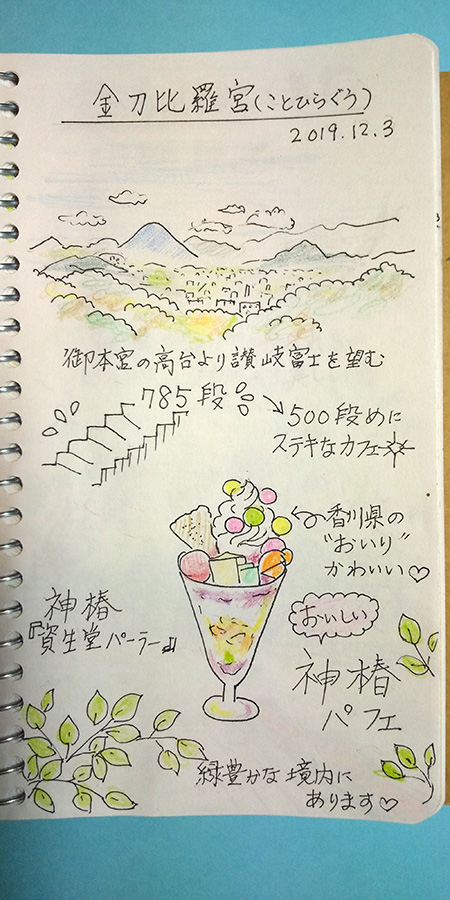 金刀比羅宮(ことひらぐう)
2019.12.3
御本宮の高台より讃岐富士を望む
785段
500段めに
ステキなカフェ
香川県の
"おいり"
かわいい♡
神椿
『資生堂パーラー』
おいしい
神椿
パフェ
緑豊かな境内に
あります♡